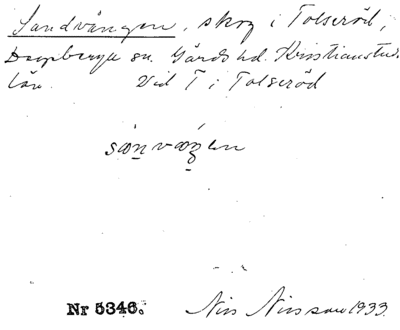 Sandvången, skog i Tolseröd,
Degeberga sn. Gärds hd. Kristianstads
län. Vid T i Tolseröd
sanvaŋen
Nr 5346. Nils Nilsson 1933.